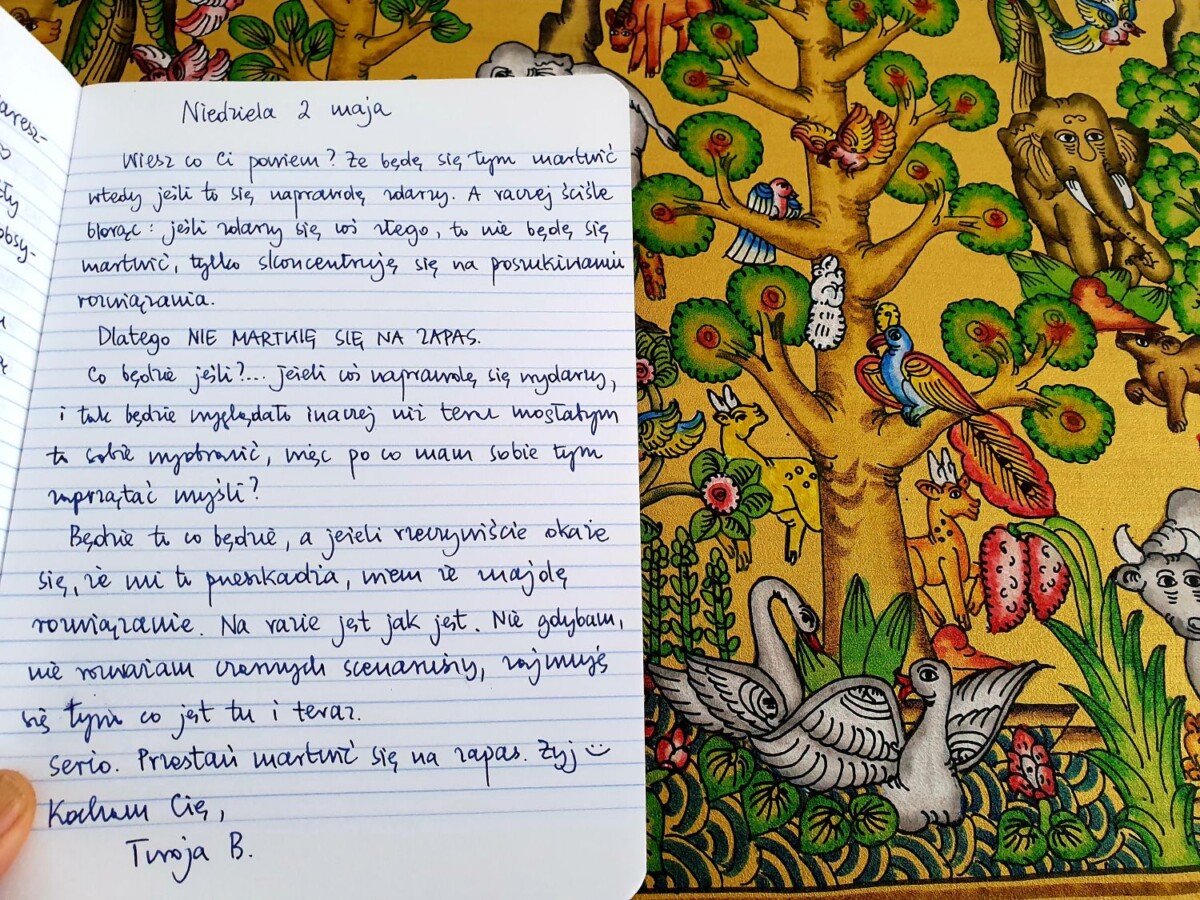 Niedziela 2 maja
Wiesz co Ci powiem? Że będę się tym martwić
wtedy jeśli to się naprawdę zdarzy. A raczej ściśle
biorąc: jeśli zdarzy się coś złego, to nie będę się
martwić, tylko skoncentruję się na poszukiwaniu
rozwiązania.
Dlatego NIE MARTWIĘ SIĘ NA ZAPAS.
Co będzie jeśli?... jeżeli coś naprawdę się wydarzy,
i tak będzie wyglądało inaczej niż teraz
to sobie wyobrazić, więc po co mam sobie tym
zaprzątać myśli?
Będzie to co będzie, a jeżeli rzeczywiście okaże
się, że mi to przeszkadza, wiem że znajdę
rozwiązanie. Na razie jest jak jest. Nie gdybam,
nie rozważam czarnych scenariuszy, zajmuję
się tym co jest tu i teraz.
Serio. Przestań martwić się na zapas. Żyj
Kocham Cię,
Twoja B.